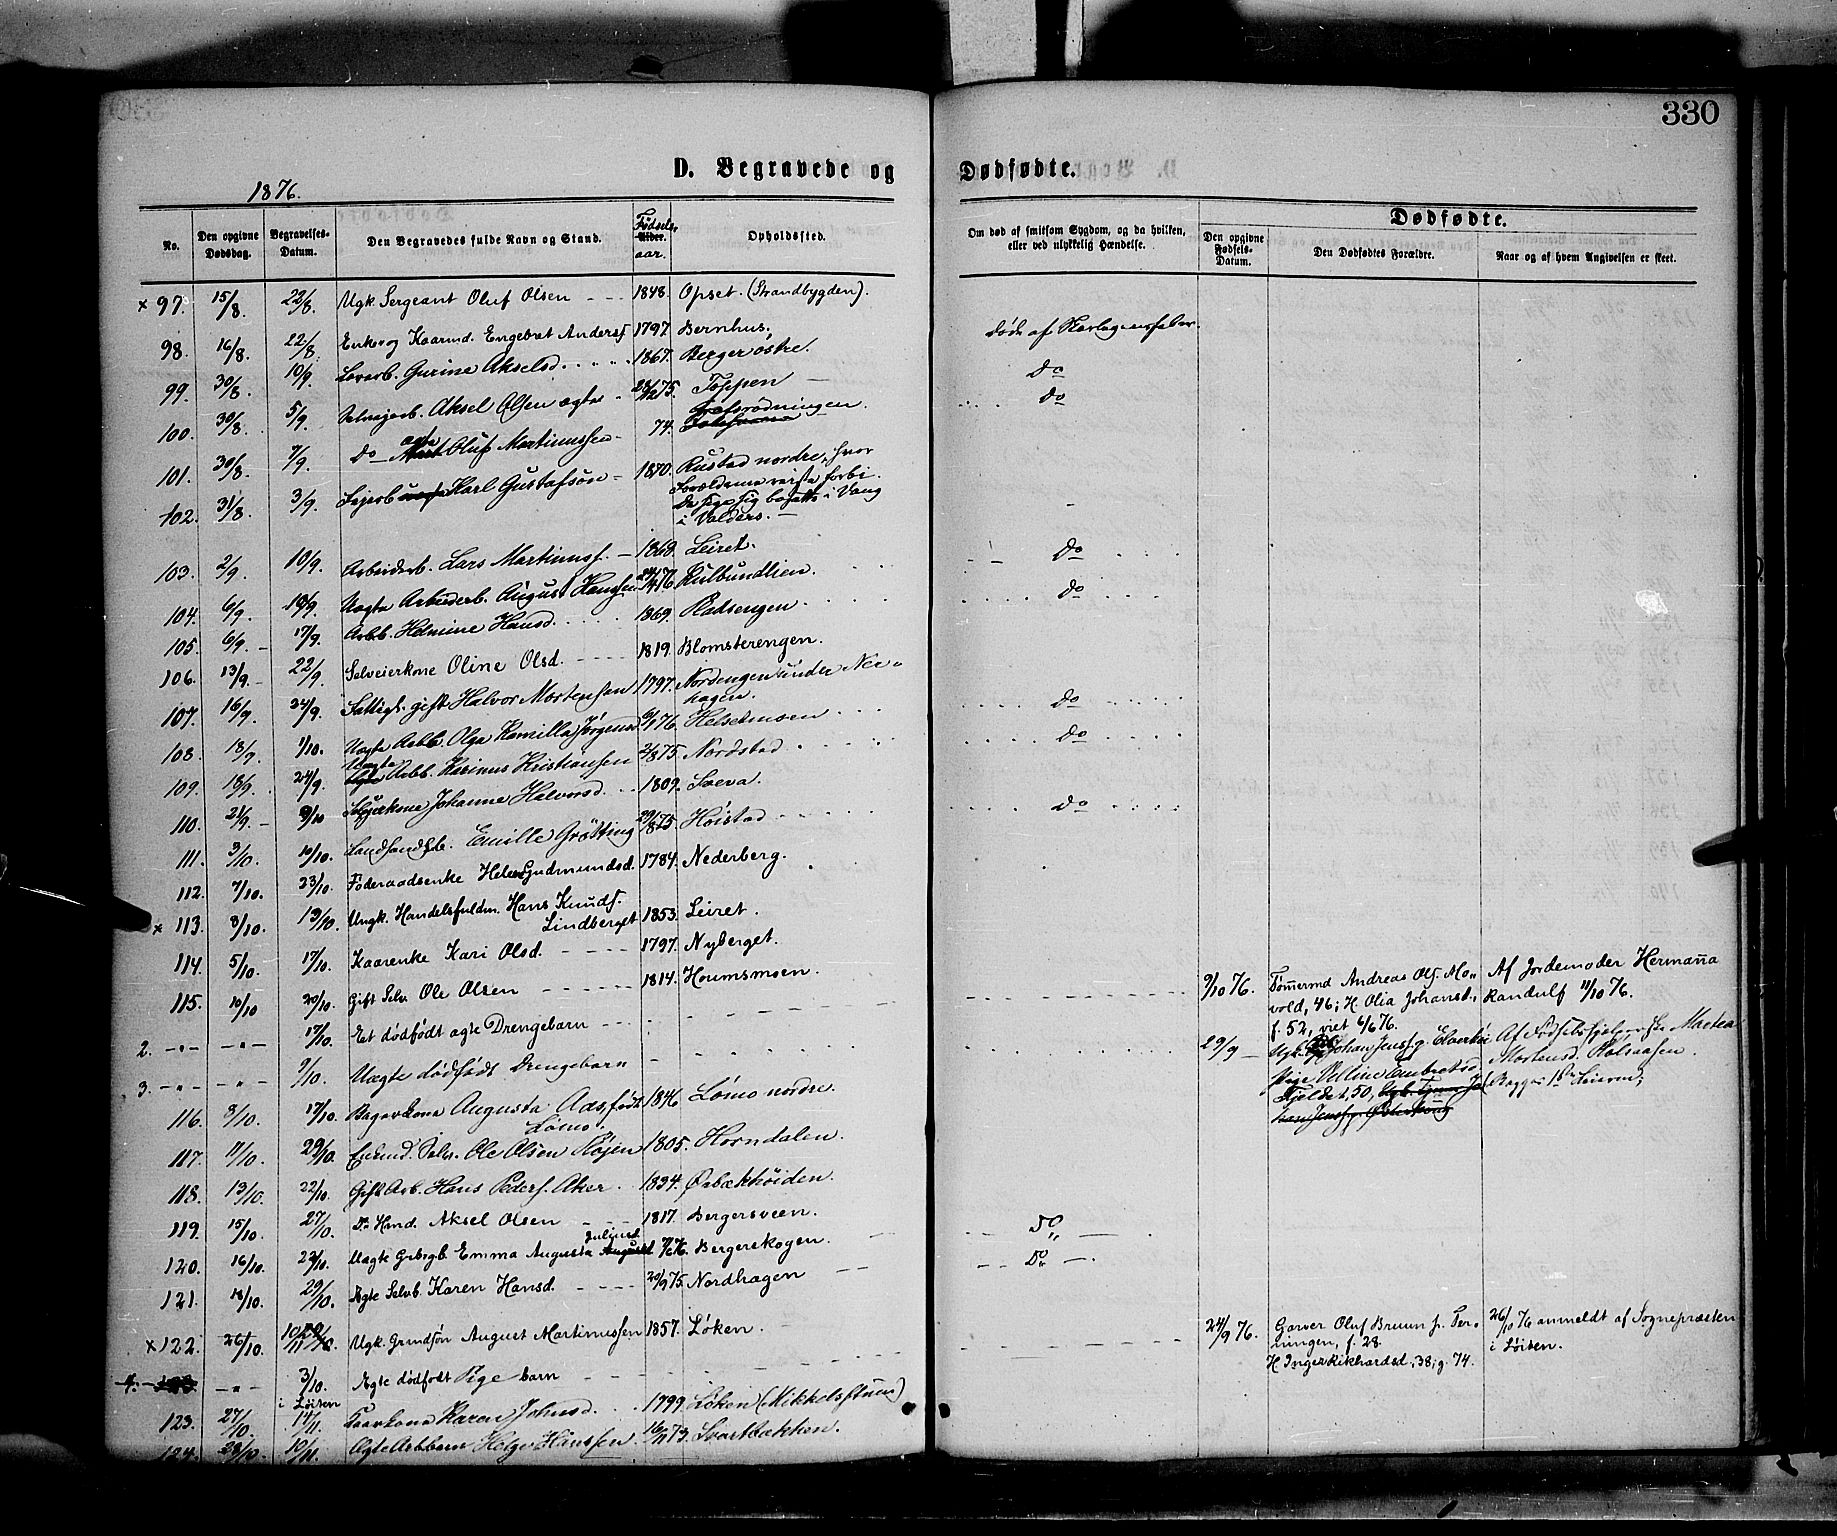 330
D. Begravede og Dødfødte.
1876.
No.
Den opgivne Dødsdag.
Begravelses-Datum.
Den Begravedes fulde Navn og Stand.
Fødsels-
Alder.
aar.
Opholdssted.
Om død af smitsom Sygdom, og da hvilken, eller ved ulykkelig Hændelse.
Dødfødte.
Den opgivne Fødsels-Datum.
Den Dødfødtes Forældre.
Naar og af hvem Angivelsen er skeet.
× 97. 15/8. 22/8. Ugk. Sergeant Oluf Olsen 1848. Opset. (Strandbygden).
98. 16/8. 22/8. Enke og Kaarmd. Engebret Andersf 1797. Bernhus.
99. 30/8. 10/9. Gurine Akselsd. 1867. Berger østre. Do
100. 30/8. 5/9. Aksel Olsen ægte 75. Toppen Do
101. 30/8. 7/9. Do ægte Oluf Martinussen 74.
102. 31/8. 3/9. Karl Gustafsøn 1870. Rustad nordre, hvor
Forældrene reiste forbi.
i Vang
i Valders.
103. 2/9. 10/9. Arbeiderb. Lars Martinusf. 1868. Leiret. Do
104. 6/9. 10/9. Uægte Arbeiderb. August Hansen 76. Kulbundlien. Do
105. 6/9. 17/9. Arbb. Helmine Hansd. 1869. Pladsengen.
106. 13/9. 22/9. Selveierkone Oline Olsd. 1819. Blomsterengen.
107. 16/9. 24/9. Fattigl. gift Halvor Mortensen 1797. Nordengen under Ner-
hagen. Do
108. 18/9. 1/10. Uægte Arbb. Olga Kamilla Jørgensd 76. Helsetmoen Do
109. 18/9. 24/9. Uægte Arbb. Karinus Kristiansen 2/8 75. Nordstad
110. 21/9. 8/10 Johanne Halvorsd. 1809. Sæva. Do
111. 3/10. 10/10. Emille Grøtting 75. Høistad
112. 7/10. 23/10. Føderaadsenke Helene Gudmundsd. 1784. Nederberg.
× 113. 8/10. 13/10. Ungk. Handelsfuldm. Hans Knudf.
Lindberget 1853. Leiret.
114. 5/10. 17/10. Kaarenke Kari Olsd. 1797. Nyberget.
115. 10/10 20/10. Gift Selv. Ole Olsen 1814. Houmsmoen.
2. -"- -"- 17/10. Et dødfødt ægte Drengebarn
9/10 76. Tømermd Andreas Ols. Mo-
vold, 46; H. Olia Johansd.,
f. 52, viet 6/6 76.
Af Jordemoder Hermana
Randulf 11/10 76.
3. -"- -"- 9/10. Uægte dødfødt Drengebarn
29/9 Ugk. Johan Jensf.
Pige Velline Embretsd
50,
Af Fødselshjælperske Martea
Mortensd.
116. 8/10. 17/10. Augusta født
Lømo. 1846 Lømo nordre.
117. 11/10. 29/10. Enkemd. Selv. Ole Olsen Røjen 1805. Horndalen.
118. 13/10. 22/10. Gift Arb. Hans Pedersf. Aker. 1834. Ørbækhøiden.
119. 15/10. 27/10. Do Hmd. Aksel Olsen 1817. Bergersveen. Do
120. 16/10. 23/10. Uægte Emma Augusta Juliusd. 76. Bergerskogen. Do
121. 18/10. 29/10. Ægte Selvb. Karen Hansd. 20/9 75. Nordhagen
× 122. 26/10. Ugk. Grndsøn August Martinussen 1857. Løken.
4. -"- 3/10. Ægte dødfødt Pige barn
i Løiten
24/9 76. Garver Oluf Bruun p. Ter-
ningen, f. 28.
H. Inger Rikhardsd., 38; g. 74.
26/10 76 anmeldt af Sognepræsten
i Løiten.
123. 27/10. 14/11. Kaarkone Karen Johnsd. 1799. Løken (Mikkelstuen)
124. 28/10. 10/11. Ægte Arbbarn Helge Hanssen. 73. Svartbækken.